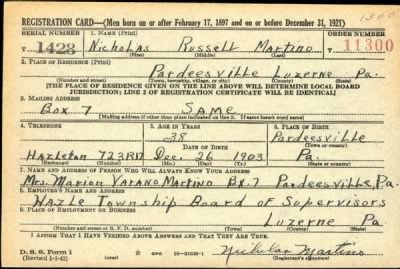 1300
REGISTRATION CARD—(Men born on or after February 17, 1897 and on or before December 31, 1921)
SERIAL NUMBER 1. NAME (Print) ORDER NUMBER
T 1428 Nicholas Russell Martino T 11300
2. PLACE OF RESIDENCE (Print)
Pardeesville Luzerne Pa.
(Number and street) (Town, township, village, or city) (County) (State)
[THE PLACE OF RESIDENCE GIVEN ON THE LINE ABOVE WILL DETERMINE LOCAL BOARD
JURISDICTION; LINE 2 OF REGISTRATION CERTIFICATE WILL BE IDENTICAL]
3. MAILING ADDRESS
Box 7 SAME
[Mailing address if other than place indicated on line 2. If same insert word same]
4. TELEPHONE 5. AGE IN YEARS 6. PLACE OF BIRTH
38 Pardeesville
DATE OF BIRTH (Town or county)
Hazleton 723R17 Dec. 26 1903 Pa.
(Exchange) (Number) (Mo.) (Day) (Yr.) (State or country)
7. NAME AND ADDRESS OF PERSON WHO WILL ALWAYS KNOW YOUR ADDRESS
Mrs. Marion Varano Martino Bx. 7 Pardeesville, Pa.
8. EMPLOYER'S NAME AND ADDRESS
Hazle Township Board of Supervisors
9. PLACE OF EMPLOYMENT OR BUSINESS
Luzerne Pa
(Number and street or R. F. D. number) (Town) (County) (State)
I AFFIRM THAT I HAVE VERIFIED ABOVE ANSWERS AND THAT THEY ARE TRUE.
D. S. S. Form 1
(Revised 1-1-42) GPO Nicholas Martino
(Registrant's signature)